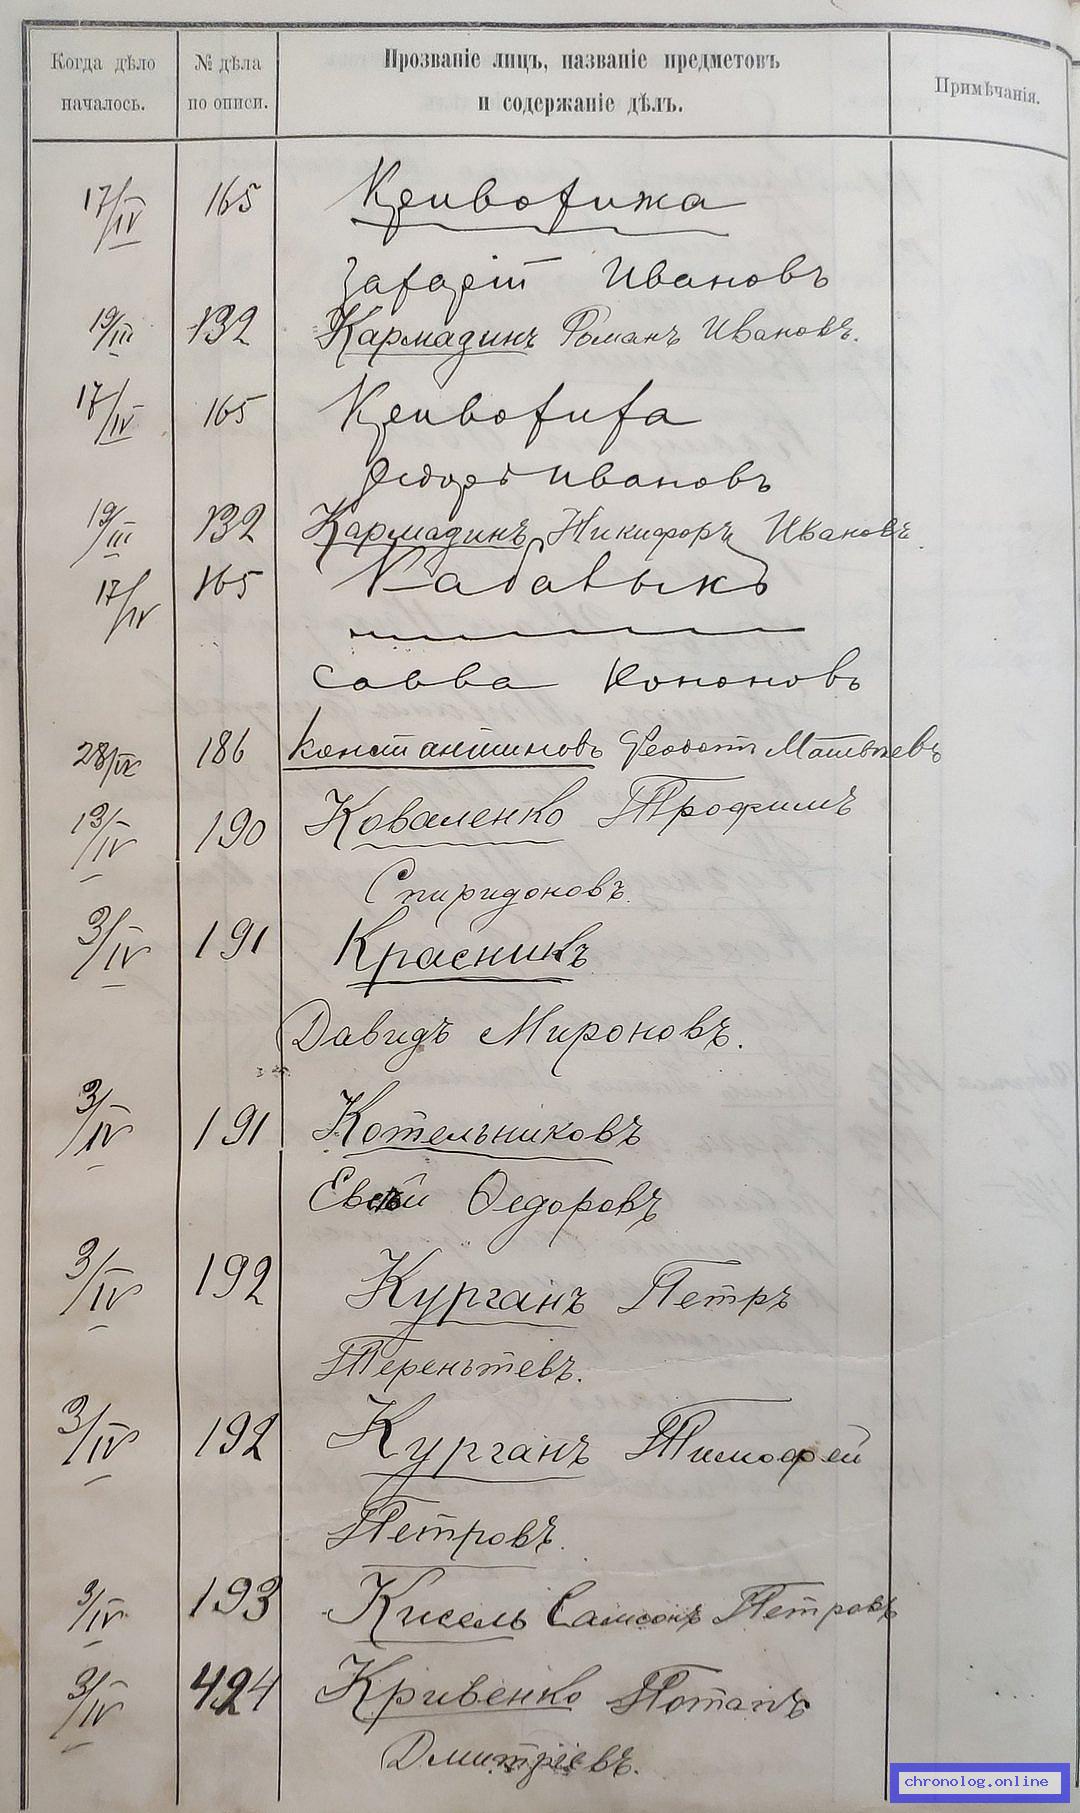 Когда дѣло началось.
№ дѣла по описи.
Прозваніе лицъ, названіе предметовъ
и содержаніе дѣлъ.
Примѣчанія.
17/IV 165 Кривохижа
Захарій Ивановъ
19/III 132 Кармадинъ Романъ Ивановъ.
17/IV 165 Кривохиха
Федоръ Ивановъ
19/III 132 Кармадинъ Никифоръ Ивановъ.
17/IV 165
Савва Кононовъ
28/IV 186 Константиновъ Феодотъ Матвѣевъ
13/IV 190 Коваленко Трофимъ
Спиридоновъ.
3/IV 191 Красникъ
Давидъ Мироновъ.
3/IV 191 Котельниковъ
Федоровъ
3/IV 192 Курганъ Петръ
Терентьевъ.
3/IV 192 Курганъ Тимофей
Петровъ.
3/IV 193 Кисель Самсонъ Петровъ
3/IV 424 Кривенко Потапъ
Дмитріевъ.
chronolog.online